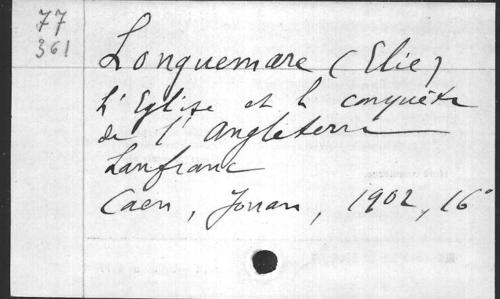 77
361
Longuemare (Elie)
L'Eglise et la conquête
de l'Angleterre
Lanfranc
Caen, Jouan, 1902, 16°